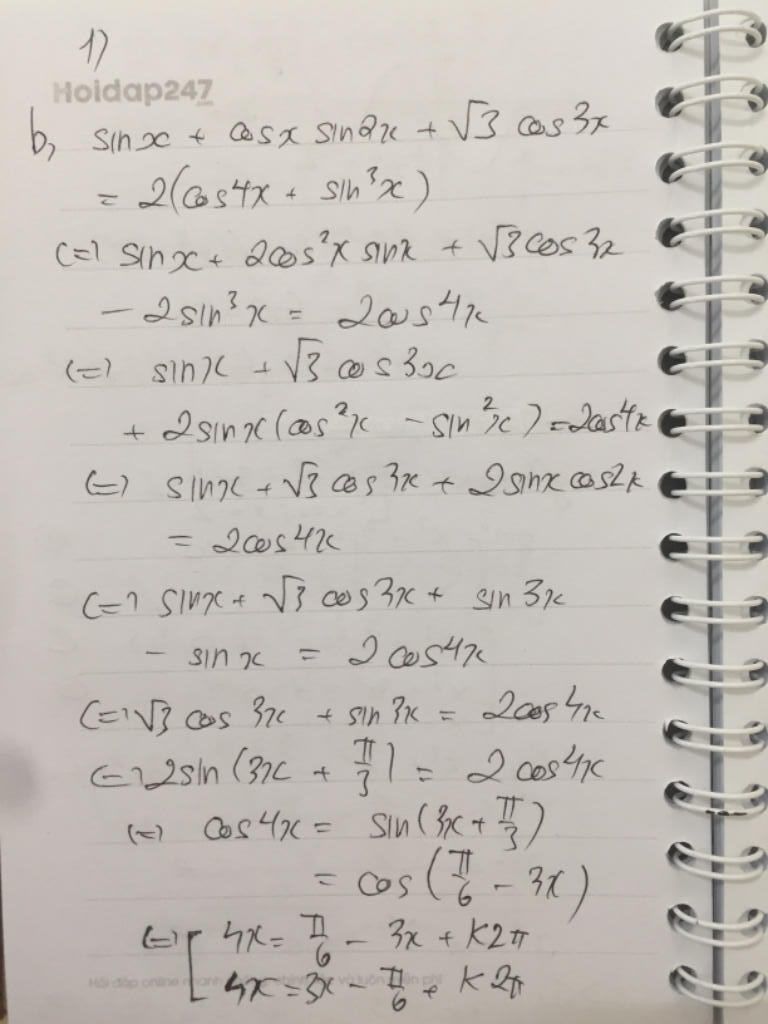 1)
Hoidap247
b, sinx + cosx sin2x + √3 cos3x
= 2(cos4x + sin³x)
<=> sinx + 2cos²x sinx + √3 cos3x
- 2sin³x = 2cos4x
<=> sinx + √3 cos3x
+ 2sinx(cos²x - sin²x) = 2cos4x
<=> sinx + √3 cos3x + 2sinx cos2x
= 2cos4x
<=> sinx + √3 cos3x + sin3x
- sinx = 2cos4x
<=> √3 cos3x + sin3x = 2cos4x
<=> 2sin(3x + π/3) = 2cos4x
<=> cos4x = sin(3x + π/3)
= cos(π/6 - 3x)
<=> [ 4x = π/6 - 3x + K2π
4x = 3x - π/6 + K2π
Hỏi đáp online nhanh